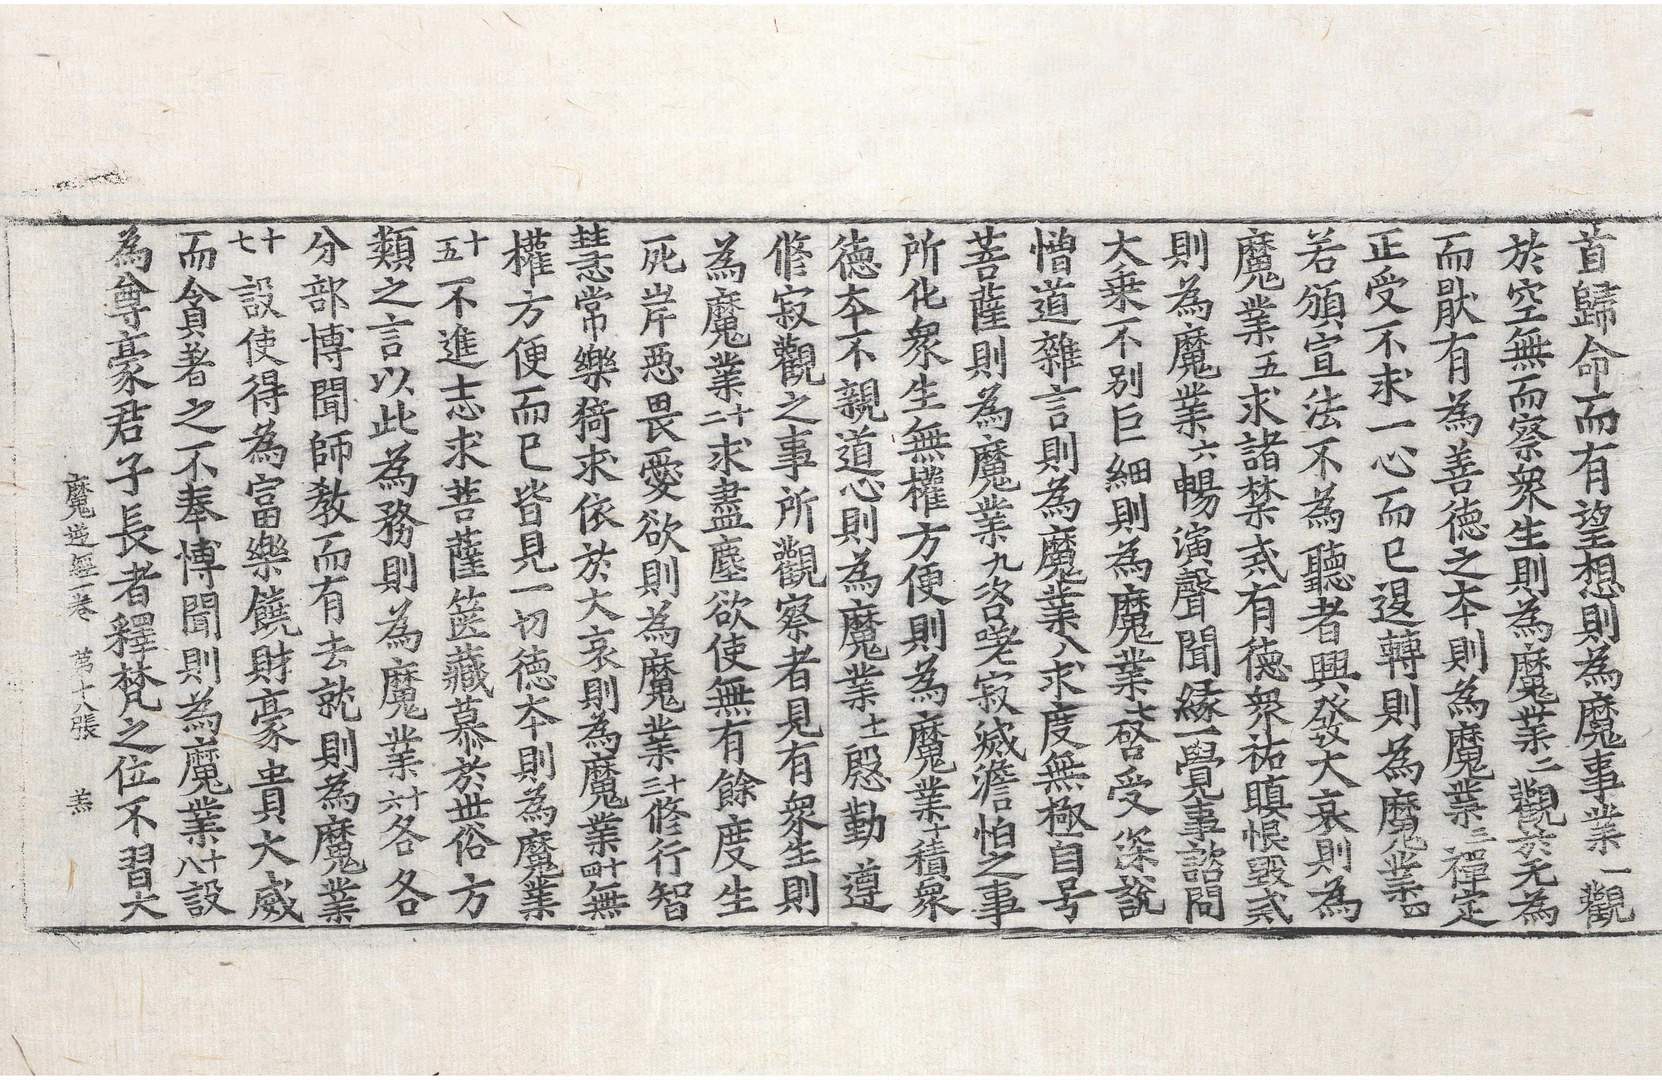 首歸命而有望想則為魔事業一觀
於空無而察衆生則為魔業二觀於无為
而猒有為善德之本則為魔業三禪定
正受不求一心而已退轉則為魔業四
若頒宣法不為聽者興發大哀則為
魔業五求諸禁戒有德衆祐瞋恨毀戒
則為魔業六暢演聲聞緣一覺事諮問
大乗不別巨細則為魔業七啓受深說
憎道雜言則為魔業八求度無極自号
菩薩則為魔業九咨嗟寂滅澹怕之事
所化衆生無權方便則為魔業十積衆
德本不親道心則為魔業十一慇勤遵
修寂觀之事所觀察者見有衆生則
為魔業十二求盡塵欲使無有餘度生
死岸惡畏愛欲則為魔業十三修行智
慧常樂猗求依於大哀則為魔業十四無
權方便而已皆見一切德本則為魔業
十五不進志求菩薩篋藏慕於世俗方
類之言以此為務則為魔業十六各各
分部博聞師教而有去就則為魔業
十七設使得為富樂饒財豪貴大威
而貪著之不奉博聞則為魔業十八設
為尊豪君子長者釋梵之位不習大
魔逆經一卷 第十八張 羔